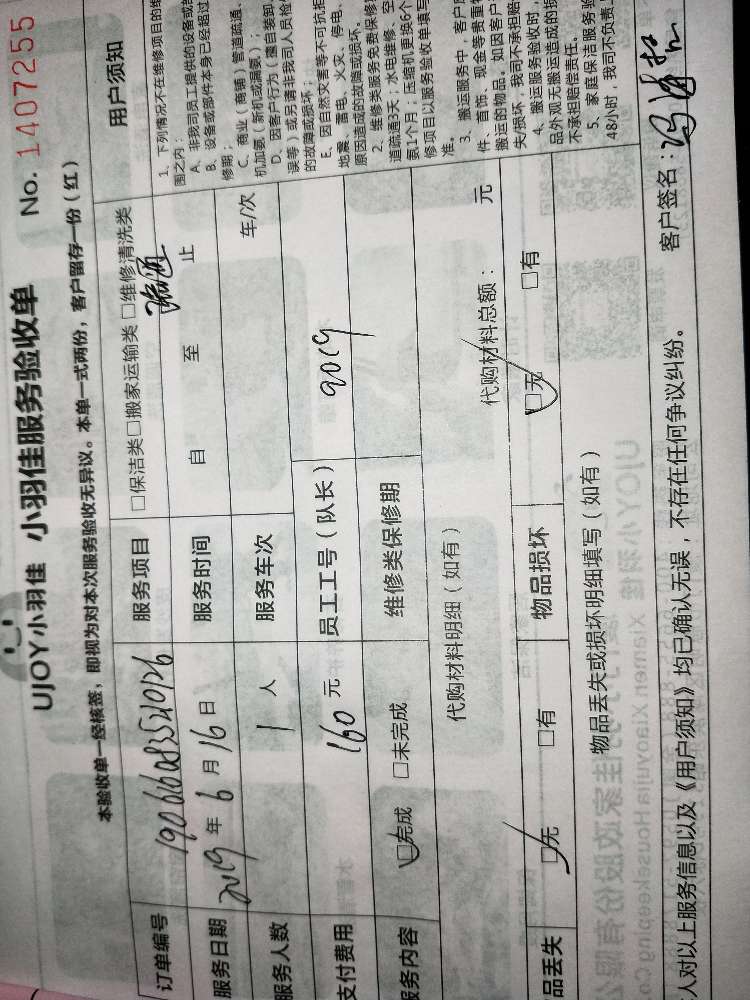 UJOY小羽佳 小羽佳服务验收单 No. 1407255
本验收单一经核签，即视为对本次服务验收无异议。本单一式两份，客户留存一份（红）
订单编号 服务项目 □保洁类□搬家运输类 □维修清洗类
服务日期 2019年6月16日 服务时间 自 至 止
服务人数 1 人 服务车次 车/次
支付费用 160元 员工工号（队长） 2019
服务内容 ☑完成 □未完成 维修类保修期
代购材料明细（如有） 代购材料总额： 元
品丢失 ☑无 □有 物品损坏 ☑无 □有
物品丢失或损坏明细填写（如有）
人对以上服务信息以及《用户须知》均已确认无误，不存在任何争议纠纷。 客户签名：
用户须知
1、下列情况不在维修项目的
围之内：
A、非我司员工提供的设备或
B、设备或部件本身已经超过
修期；
C、商业（商铺）管道疏通、
机加氨（新机或漏氨）；
D、因客户行为（擅自装卸、
误等）或另请非我司人员检
的故障或损坏；
E、因自然灾害等不可抗拒
地震、雷电、火灾、停电、
原因造成的故障或损坏。
2、维修类服务免费保修
道疏通3天；水电维修、
更1个月；压缩机更换6个
修项目以服务验收单填写
准。
3、搬运服务中，客户
件、首饰、现金等贵重
搬运的物品。如因客户
失/损坏，我司不承担赔
4、搬运服务验收时，
品外观无搬运造成的损
不承担赔偿责任。
5、家庭保洁服务验
48小时，我司不负责